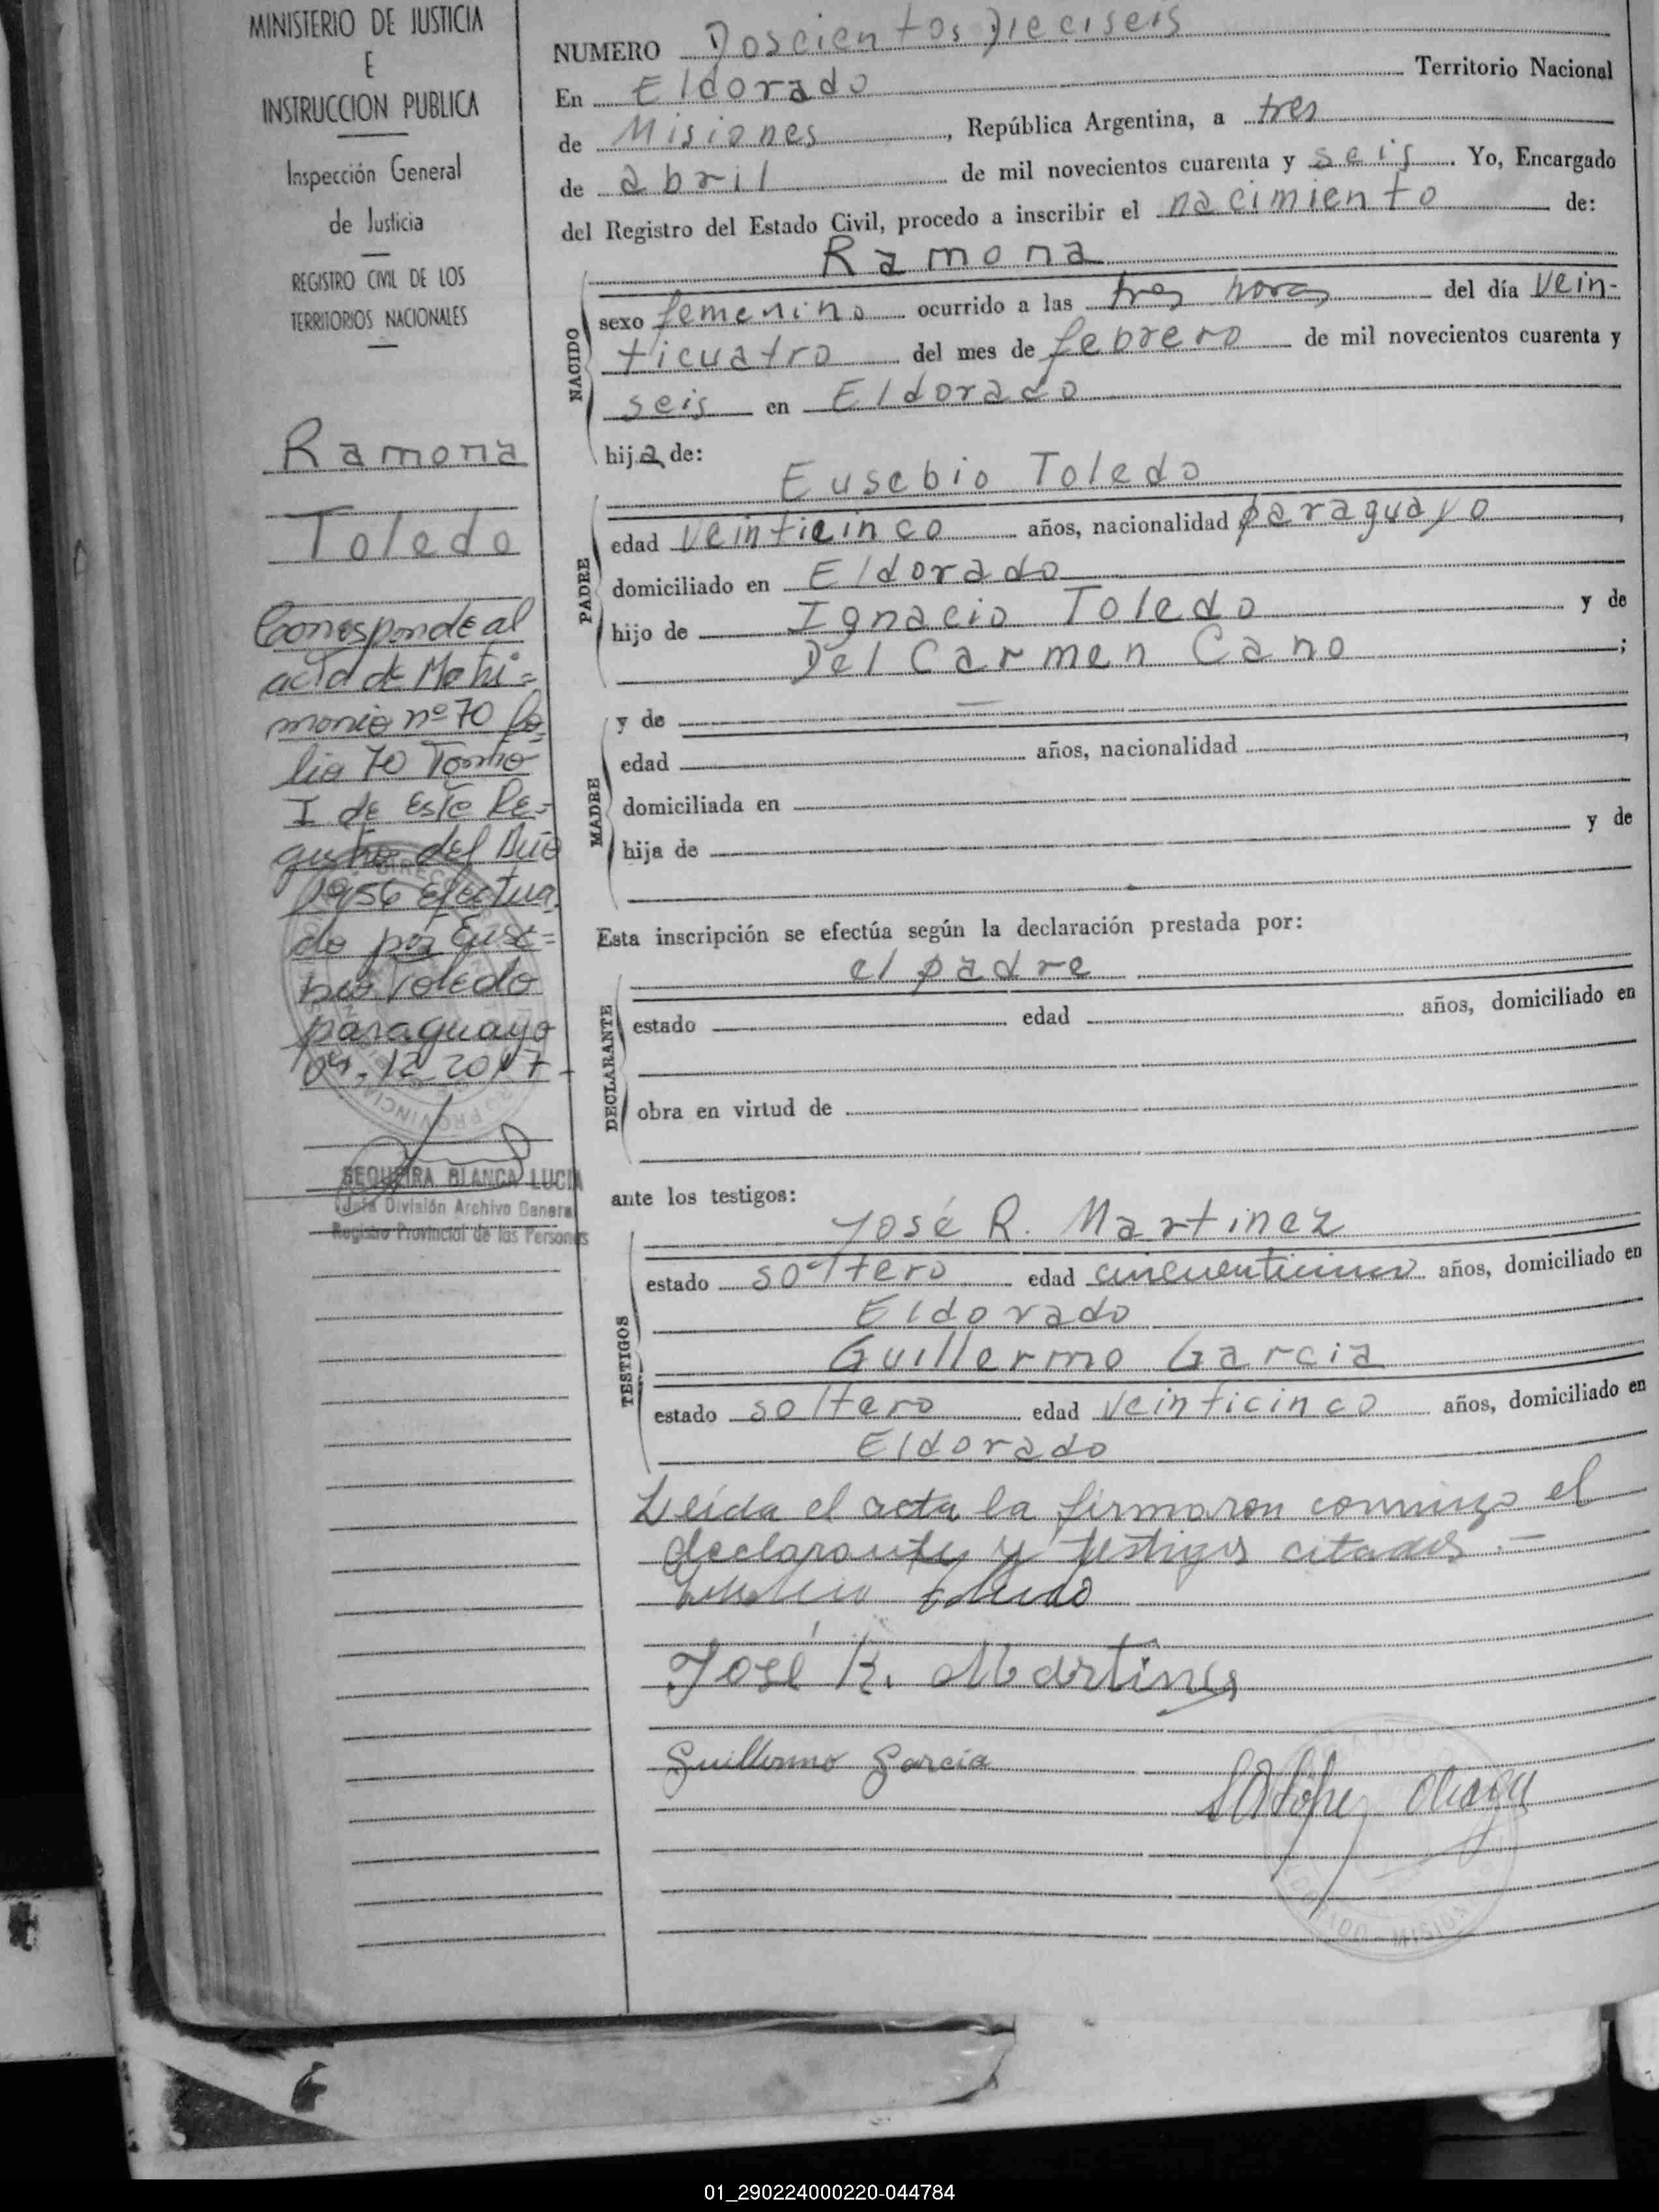 MINISTERIO DE JUSTICIA
E
INSTRUCCION PUBLICA
Inspección General
de Justicia
REGISTRO CIVIL DE LOS
TERRITORIOS NACIONALES
Ramona
Toledo
Corresponde al
acta de Matri=
monio nº 70 fo=
lio 70 Tomo
I de Este Re=
gistro del Año
1956 Efectua
do por Euse=
bio Toledo
paraguayo
04.12.2017-
SEQUEIRA BLANCA LUCIA
Jefa División Archivo General
Registro Provincial de las Personas
NUMERO Doscientos Dieciseis
En Eldorado Territorio Nacional
de Misiones, República Argentina, a tres
de abril de mil novecientos cuarenta y seis. Yo, Encargado
del Registro del Estado Civil, procedo a inscribir el nacimiento de:
Ramona
NACIDO
sexo femenino ocurrido a las tres horas del día vein-
ticuatro del mes de febrero de mil novecientos cuarenta y
seis en Eldorado
hija de:
PADRE
Eusebio Toledo
edad veinticinco años, nacionalidad paraguayo,
domiciliado en Eldorado
hijo de Ignacio Toledo y de
Del Carmen Cano;
MADRE
y de
edad años, nacionalidad,
domiciliada en
hija de y de
Esta inscripción se efectúa según la declaración prestada por:
DECLARANTE
el padre
estado edad años, domiciliado en
obra en virtud de
ante los testigos:
TESTIGOS
José R. Martinez
estado soltero edad cincuenticinco años, domiciliado en
Eldorado
Guillermo Garcia
estado soltero edad veinticinco años, domiciliado en
Eldorado
Leída el acta la firmaron conmigo el
declarante y testigos citados.-
Eusebio Toledo
José R. Martinez
Guillermo Garcia
01_290224000220-044784